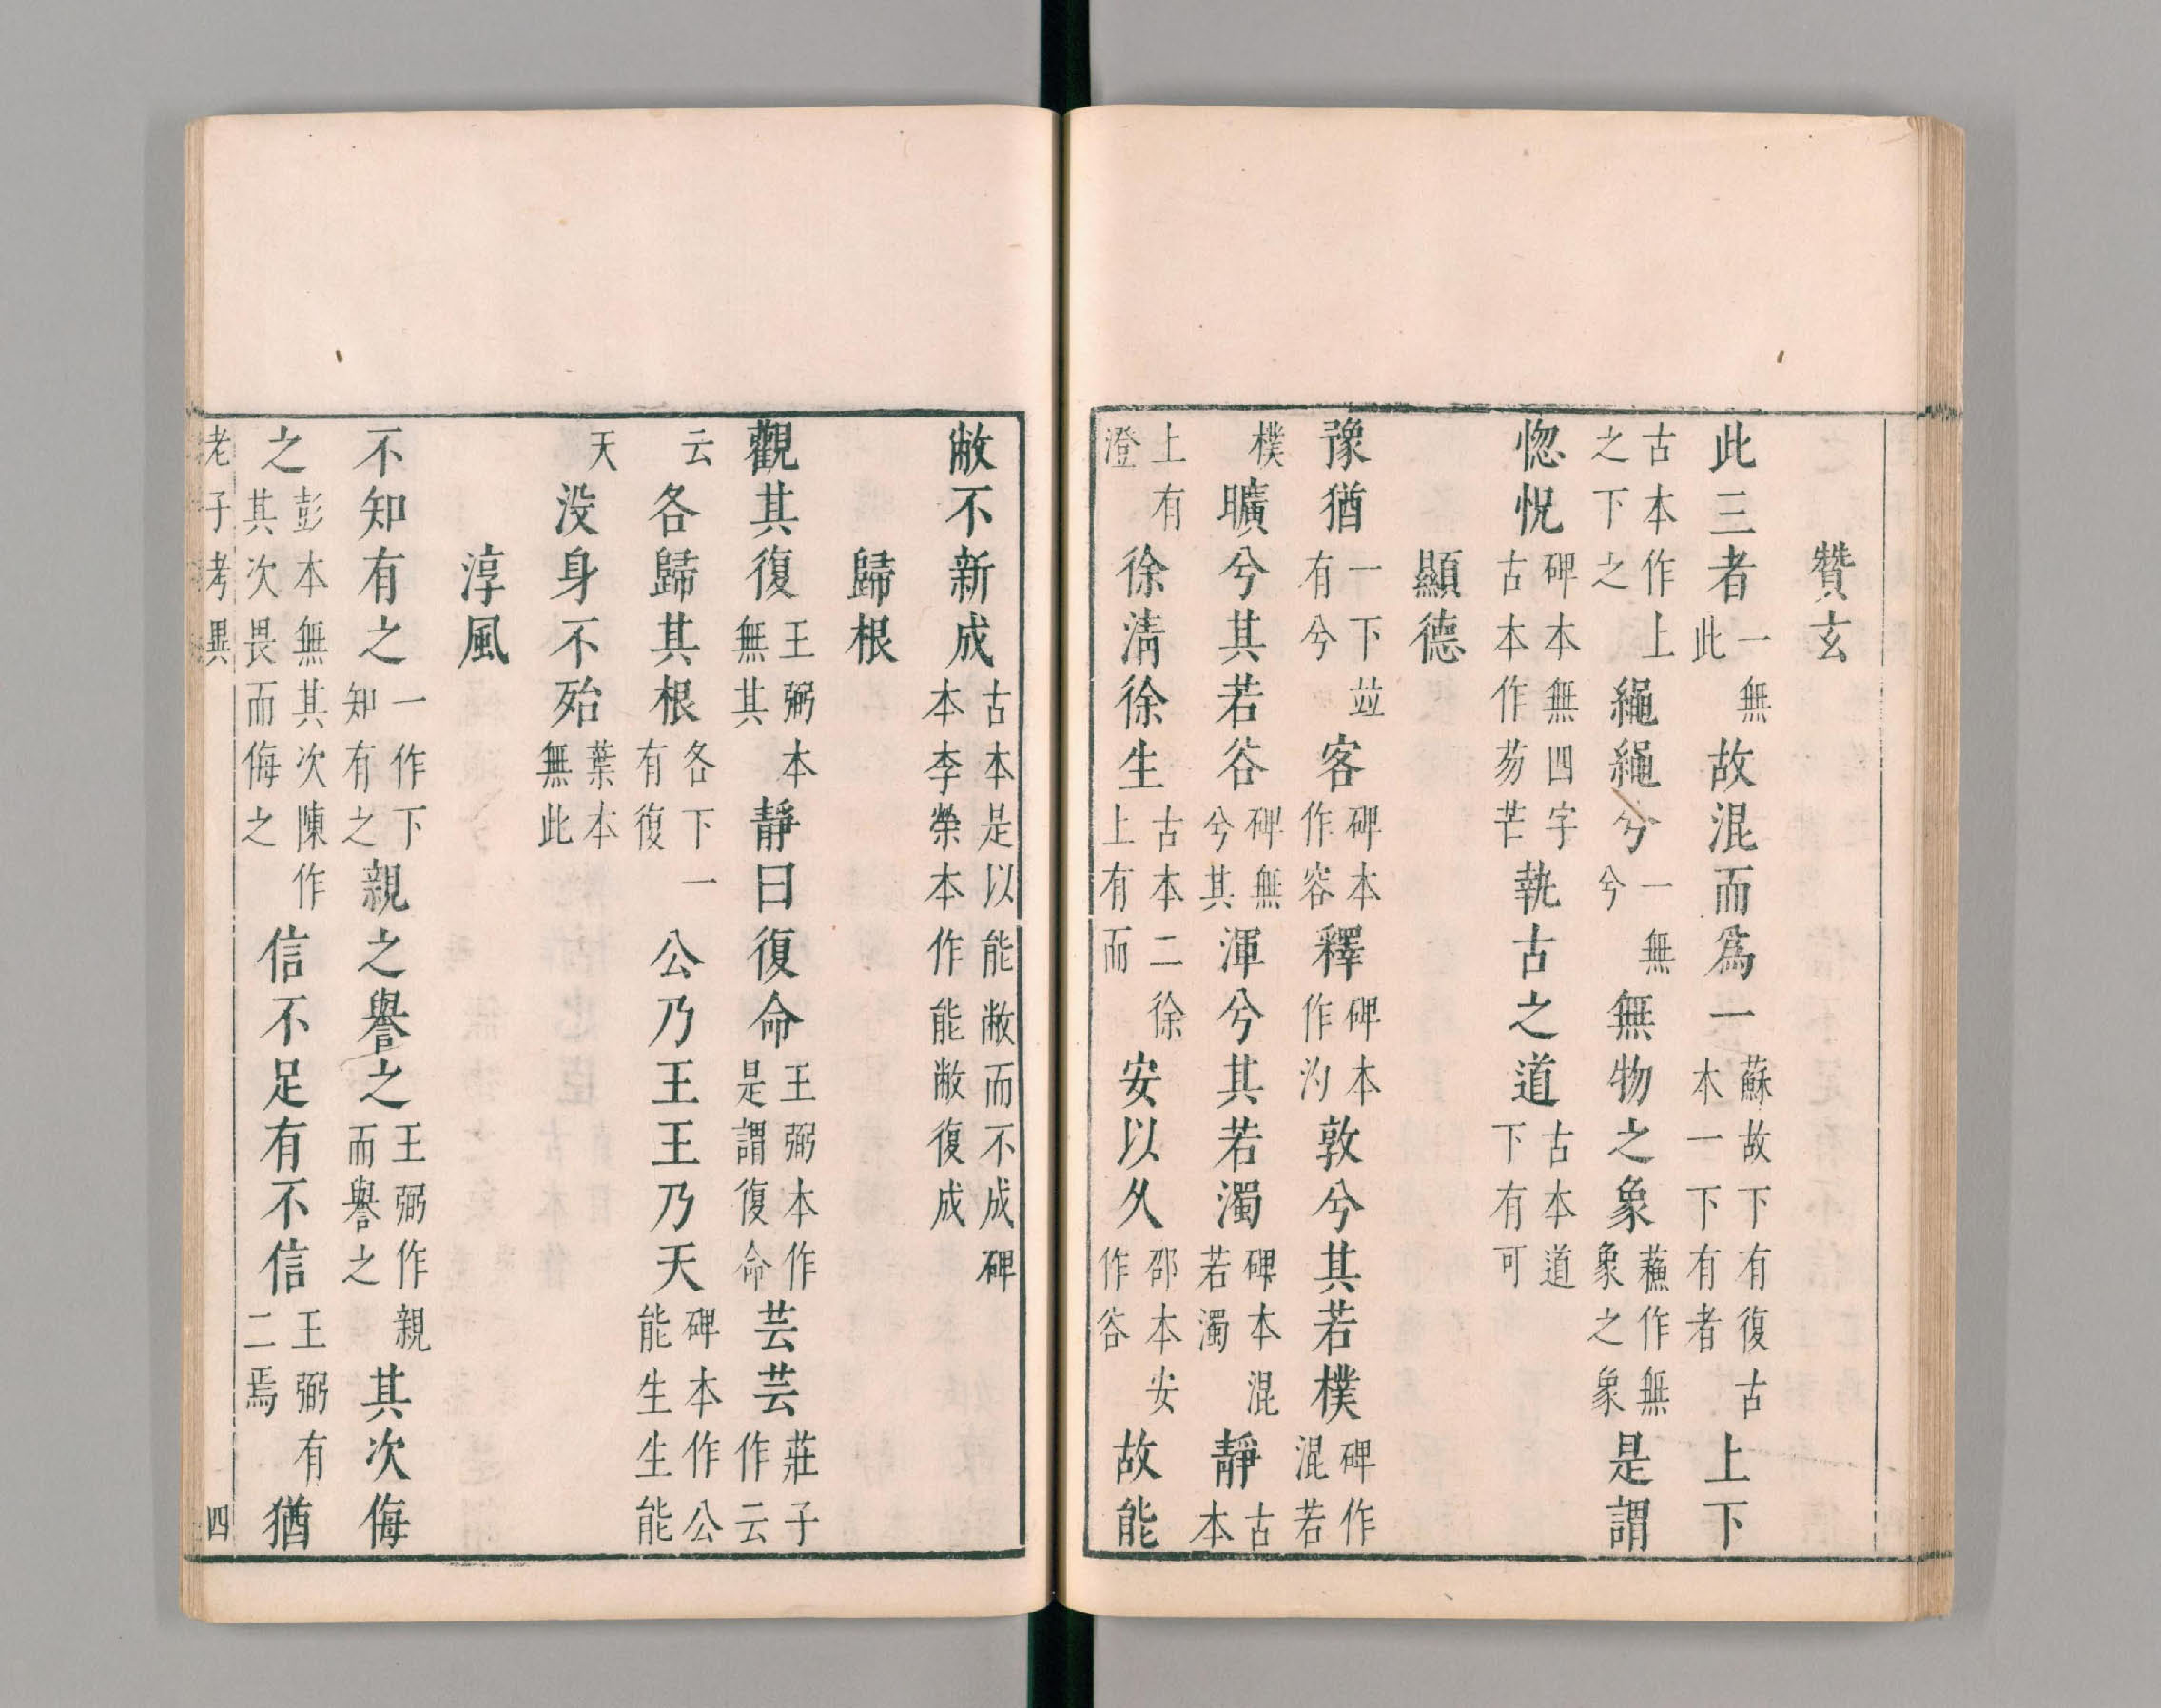 贊玄
此三者一無此故混而為一蘇故下有復古本一下有者上下
古本作上之下之繩繩兮一無兮無物之象蘓作無象之象是謂
惚怳碑本無四字古本作芴芒執古之道古本道下有可
顯德
豫猶一下竝有兮客碑本作容釋碑本作汋敦兮其若樸碑作混若
樸曠兮其若谷碑無兮其渾兮其若濁碑本混若濁靜古本
上有澄徐清徐生古本二徐上有而安以久邵本安作谷故能
敝不新成古本是以能敝而不成碑本李榮本作能敝復成
歸根
觀其復王弼本無其靜曰復命王弼本作是謂復命芸芸莊子作云
云各歸其根各下一有復公乃王王乃天碑本作公能生生能
天没身不殆葉本無此
淳風
不知有之一作下知有之親之譽之王弼作親而譽之其次侮
之彭本無其次陳作其次畏而侮之信不足有不信王弼有二焉猶
老子考異 四